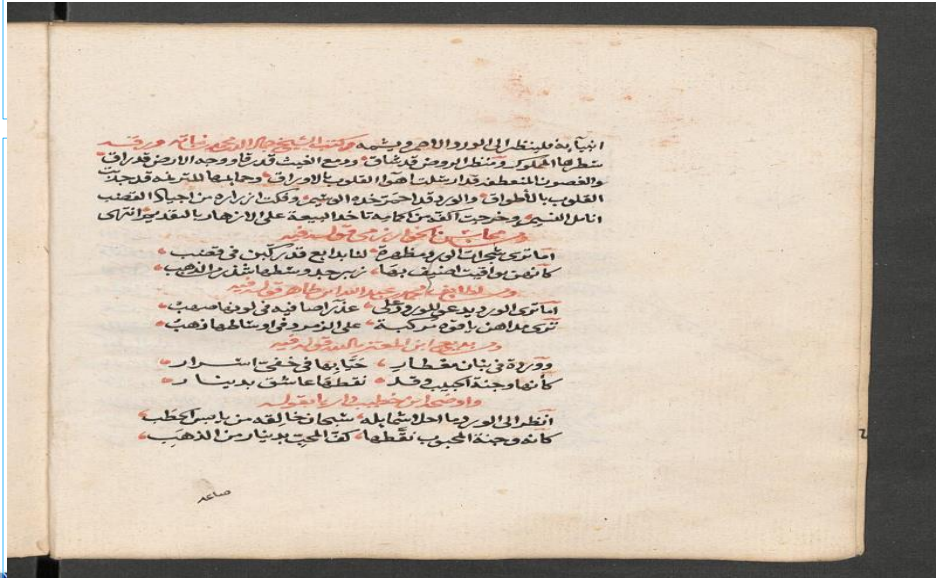 انبيآيه فلينظر الى الورد الاحمر ويشمه وكتب الشيخ جمال الدين محمد بن نباته ورقة
سطرها المملوك ومنظر الروض قد شاق ودمع الغيث قد رقا ووجه الارض قد راق
والغصون المنعطفة قد ارسلت اهوآ القلوب بالاوراق وحمايمها المترنمة قد جذبت
القلوب بالأطواق والورد قد احمر خده الوسيم وفكت ازراره من اجياد القضب
انامل النسيم وخرجت اكفه من اكمامه تاخذ البيعة على الازهار بالتقديم انتهى
ومن محاسن الخوارزمي قوله فيه
اما ترى شجرات الورد مظهرة لنا بدايع قد ركبن في قضب
كأنهن يواقيت اضيف بها زبرجد وسطها شذر من الذهب
ومن لطايف محمد بن عبد الله ابن طاهر قوله فيه
اما ترى الورد يدعو للورود على عذرآ صافية في لونها صهب
ترى مداهن ياقوت مركبة على الزمرد في اوساطها ذهب
ومن بديع ابن المعتز بالله قوله فيه
ووردة في بنان معطار حيّا بها في خفيّ اسرار
كأنها وجنة الحبيب وقد نقطها عاشق بدينار
وما وضح ابن خطيب داريا بقوله
انظر الى الورد ما احلا شمايله سبحان خالقه من يابس الحطب
كأنه وجنة المحبوب نقّطها كف المحب بدينار من الذهب
صاعد